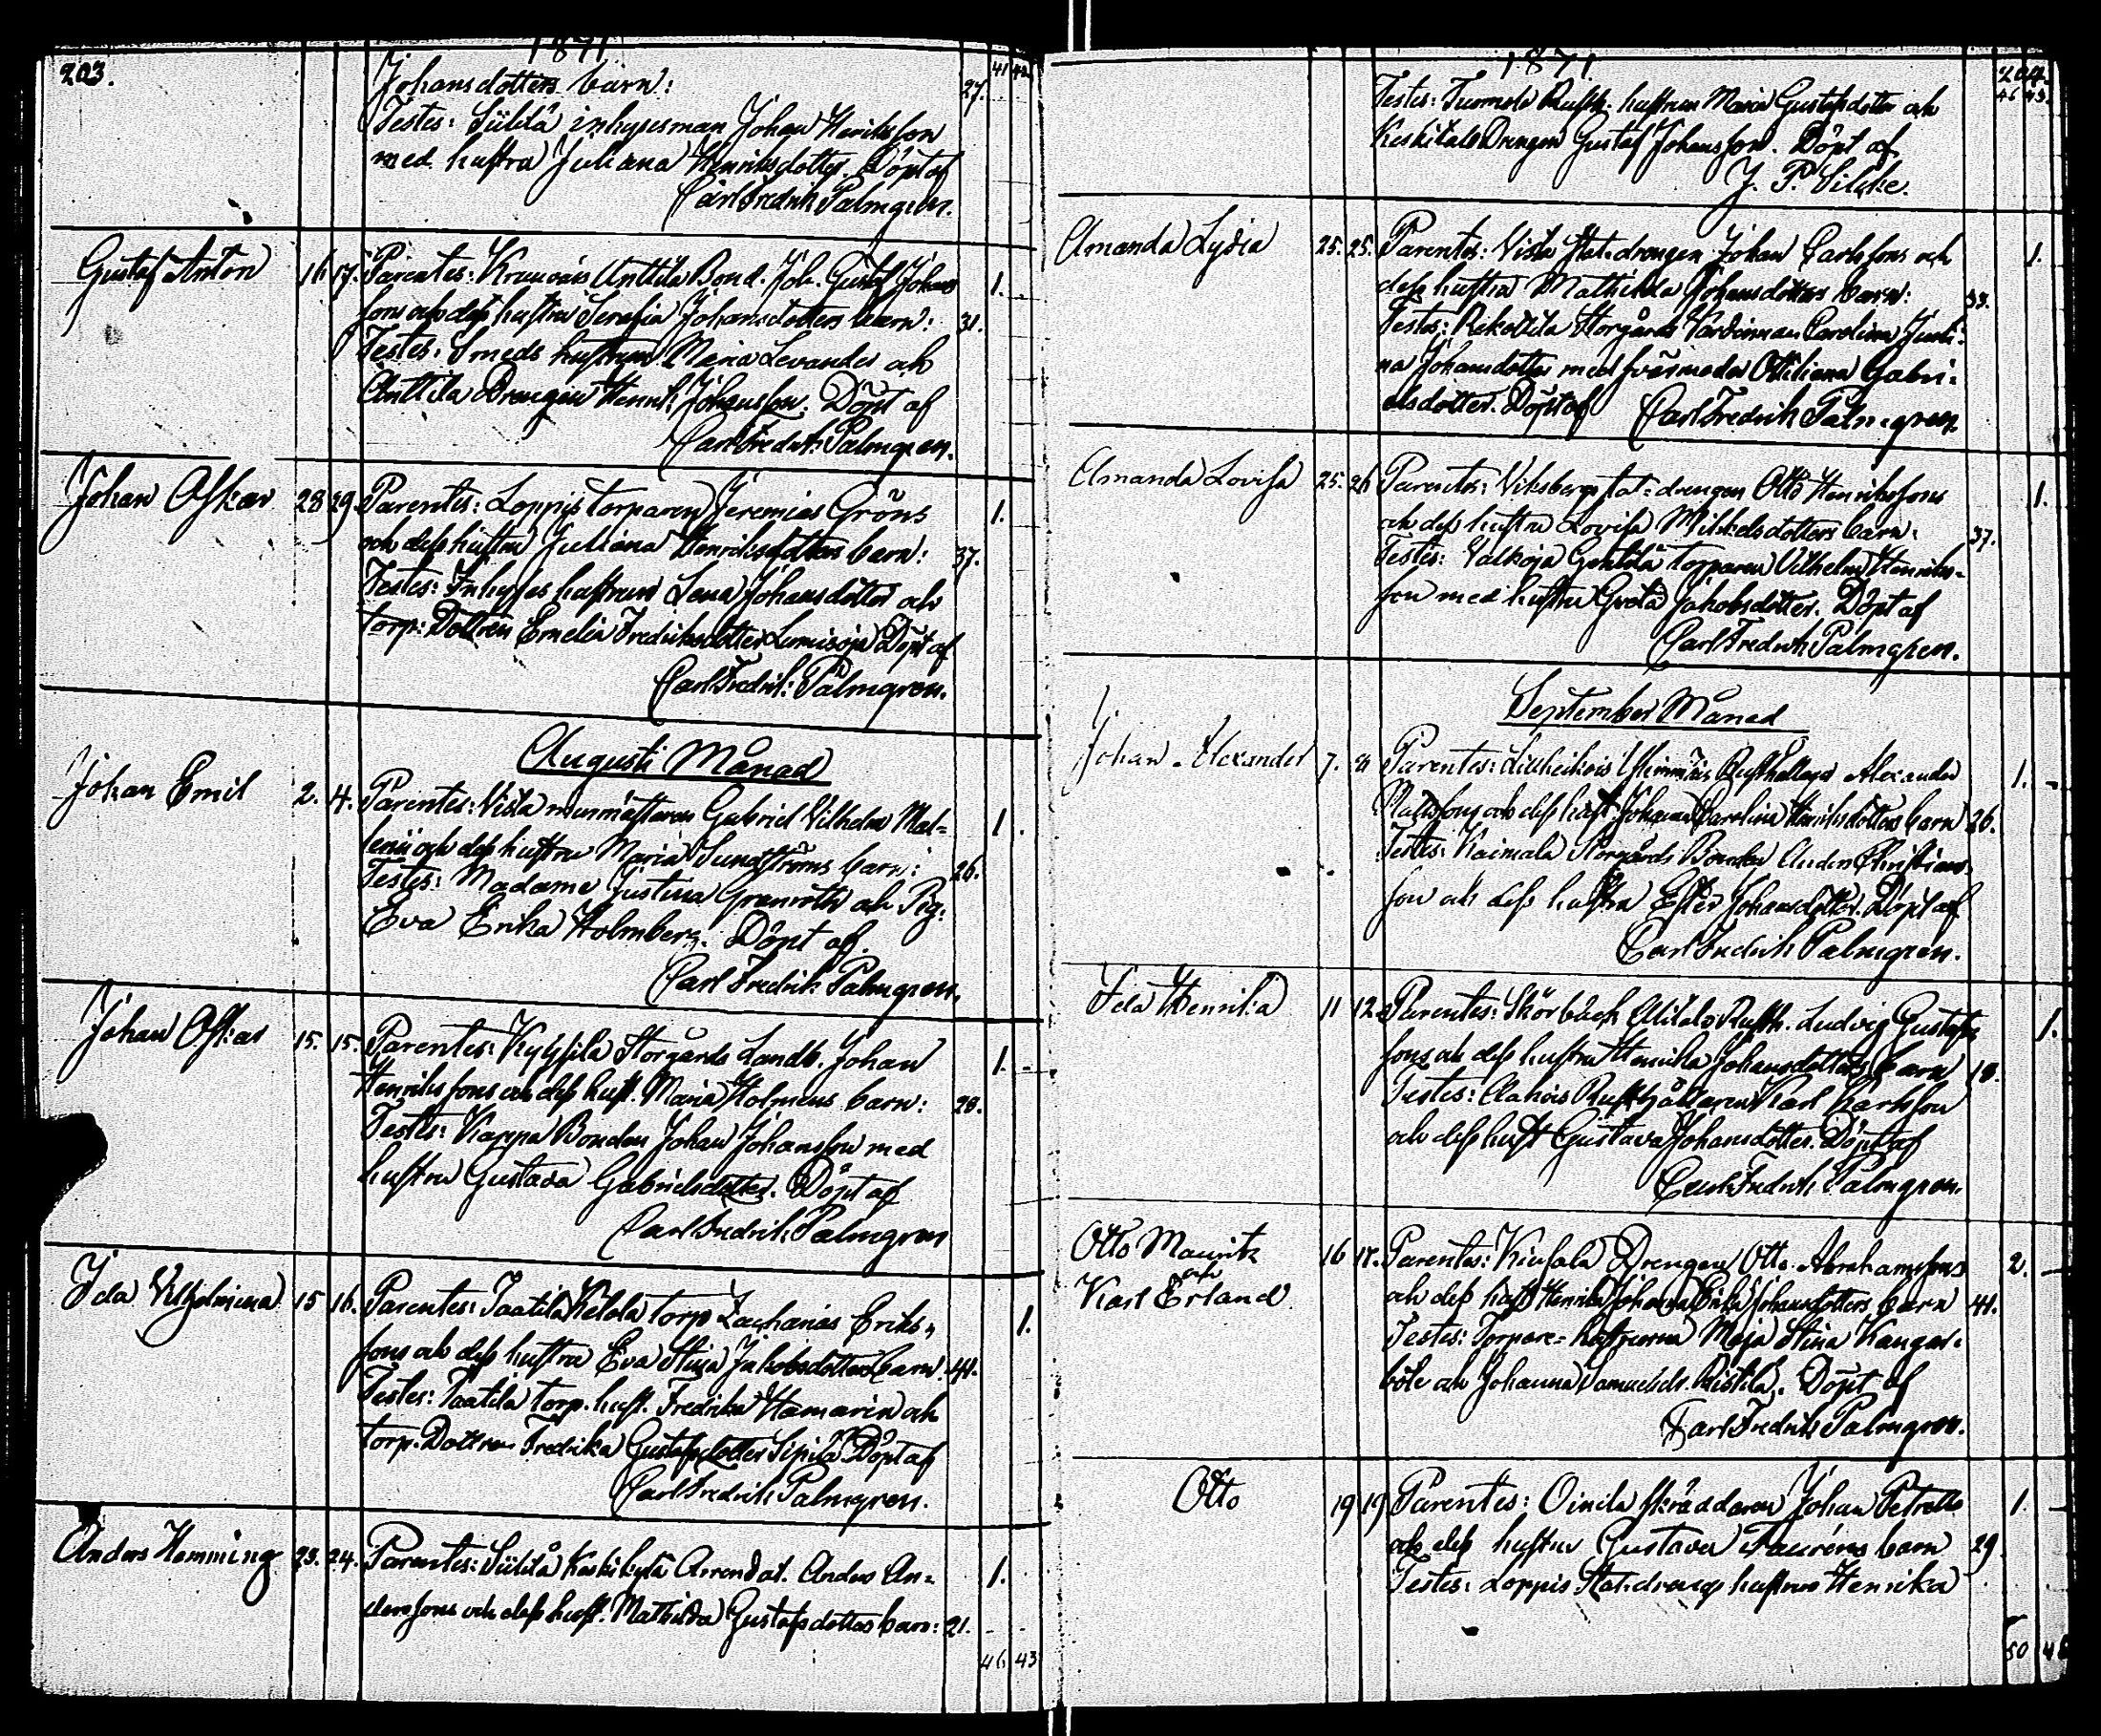 1871
203.
41 42
Johansdotters barn:
27.
Testes: Sülilä inhysesman Johan Henriksson
med hustru Juliana Henriksdotter. Döpt af
Carl Fredrik Palmgren.
Gustaf Anton 16 17. Parentes: Anttila Bond. Joh. Gustaf Johans 1.
sons och dess hustru Serafia Johansdotters barn: 31.
Testes: Smeds hustrun Maria Levander och
Anttila Drengen Henrik Johansson. Döpt af
Carl Fredrik Palmgren.
Johan Oskar 28 29. Parentes: Loppis torparen Jeremias Gröns 1.
och dess hustru Juliana Henriksdotters barn: 37.
Testes: Inhyses hustrun Lena Johansdotter och
torp: Dottren Emelia Fredriksdotter Döpt af
Carl Fredrik: Palmgren.
Augusti Månad
Johan Emil 2. 4. Parentes: Vista murmästaren Gabriel Vilhelm Mal=
lenii och dess hustru Maria Sundströms barn: 26. 1.
Testes: Madame Justina Granroth och Pig:
Eva Erika Holmberg. Döpt af
Carl Fredrik Palmgren.
Johan Oskar 15. 15. Parentes: Storgårds Landb. Johan 1.
Henrikssons och dess hust. Maria Holmens barn: 28.
Testes: Kappa Bonden Johan Johansson med
hustru Gustava Gabrielsdotter. Döpt af
Carl Fredrik Palmgren
Ida Vilhelmina 15 16. Parentes: Taatila Ketola torp Zacharias Eriks= 1.
sons och dess hustru Eva Stina Jakobsdotters barn. 44.
Testes: Taatila torp. hust. Fredrika Hamarin och
torp. Dottren Fredrika Gustafsdotter Sipilä. Döpt af
Carl Fredrik Palmgren.
Anders Hemming 23. 24. Parentes: Sülilä Keskikylä Arrendat. Anders An= 1.
derssons och dess hust. Mathilda Gustafsdotters barn: 21.
46 43
1871.
204.
46 43.
Testes: Rusth. hustrun Maria Gustafsdotter och
Keskitalo Drengen Gustaf Johansson. Döpt af
J. F.
Amanda Lydia 25. 25. Parentes: Vista Stat-drengen Johan Carlssons och 1.
dess hustru Mathilda Johansdotters barn: 33.
Testes: Rekottila Storgårds Värdinnan Carolina Justi=
na Johansdotter med svärmoder Ottiliana Gabri=
elsdotter. Döpt af Carl Fredrik Palmgren.
Amanda Lovisa 25. 26 Parentes: Viksbergs stat=drengen Otto Henrikssons 1.
och dess hustru Lovisa Mikkelsdotters barn: 37.
Testes: Valkoja torparen Vilhelm Henriks=
son med hustru Greta Jakobsdotter. Döpt af
Carl Fredrik Palmgren.
September Månad
Johan Alexander 7. 8 Parentes: Rusthållaren Alexander 1.
Mattssons och dess hust. Johanna Carolina Henriksdotters barn 26.
Testes: Kaimala Storgårds Bonden Anders Christians=
son och dess hustru Ester Johansdotter. Döpt af
Carl Fredrik Palmgren.
Ida Henrika 11 12. Parentes: Skörbäck Alitalo Rusth. Ludvig Gustafs 1.
sons och dess hustru Henrika Johansdotters barn 18.
Testes: Rusthållaren Karl Karlsson
och dess hust Gustava Johansdotter. Döpt af
Carl Fredrik Palmgren.
Otto Mauritz 16 17. Parentes: Drengen Otto Abrahamssons 2.
och
Karl Erland
och dess hust Henrika Johanna Erika Johansdotters barn 41.
Testes: Torpare=hustrurna Maja Stina Kangas=
böle och Johanna Samuelsdr. Ristilä. Döpt af
Carl Fredrik Palmgren.
Otto 19 19 Parentes: Oinila skräddaren Johan Petrells 1.
och dess hustru Gustava Fauréns barn 29
Testes: Loppis Stat-drengs hustrun Henrika
50 48